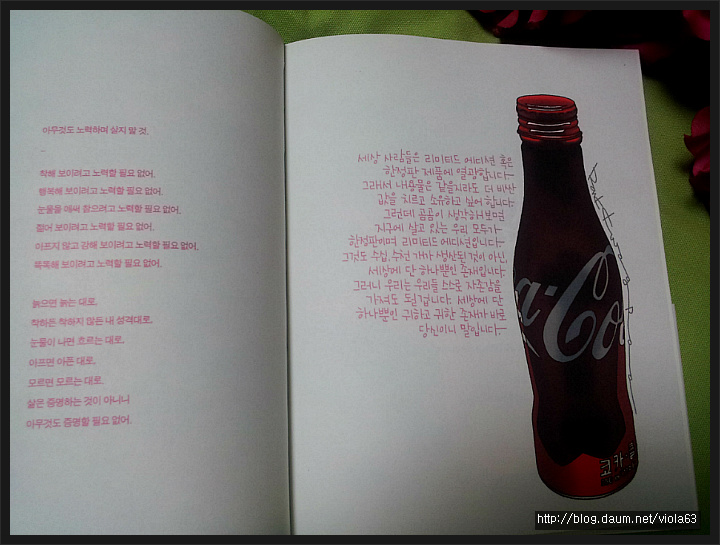 아무것도 노력하며 살지 말 것.
–
착해 보이려고 노력할 필요 없어.
행복해 보이려고 노력할 필요 없어.
눈물을 애써 참으려고 노력할 필요 없어.
젊어 보이려고 노력할 필요 없어.
아프지 않고 강해 보이려고 노력할 필요 없어.
똑똑해 보이려고 노력할 필요 없어.
늙으면 늙는 대로,
착하든 착하지 않든 내 성격대로,
눈물이 나면 흐르는 대로,
아프면 아픈 대로,
모르면 모르는 대로.
삶은 증명하는 것이 아니니
아무것도 증명할 필요 없어.
세상 사람들은 리미티드 에디션 혹은
한정판 제품에 열광합니다—
그래서 내용물은 같을지라도 더 비싼
값을 치르고 소유하고 싶어 합니다
그런데 곰곰이 생각해보면
지구에 살고 있는 우리 모두가
한정판이며 리미티드 에디션입니다—
그것도 수십, 수천 개가 생산된 것이 아닌,
세상에 단 하나뿐인 존재입니다
그러니 우리는 우리들 스스로 자존감을
가져도 될 겁니다. 세상에 단
하나뿐인 귀하고 귀한 존재가 바로
당신이니 말입니다.—
a-Co
코카-콜
http://blog.daum.net/viola63